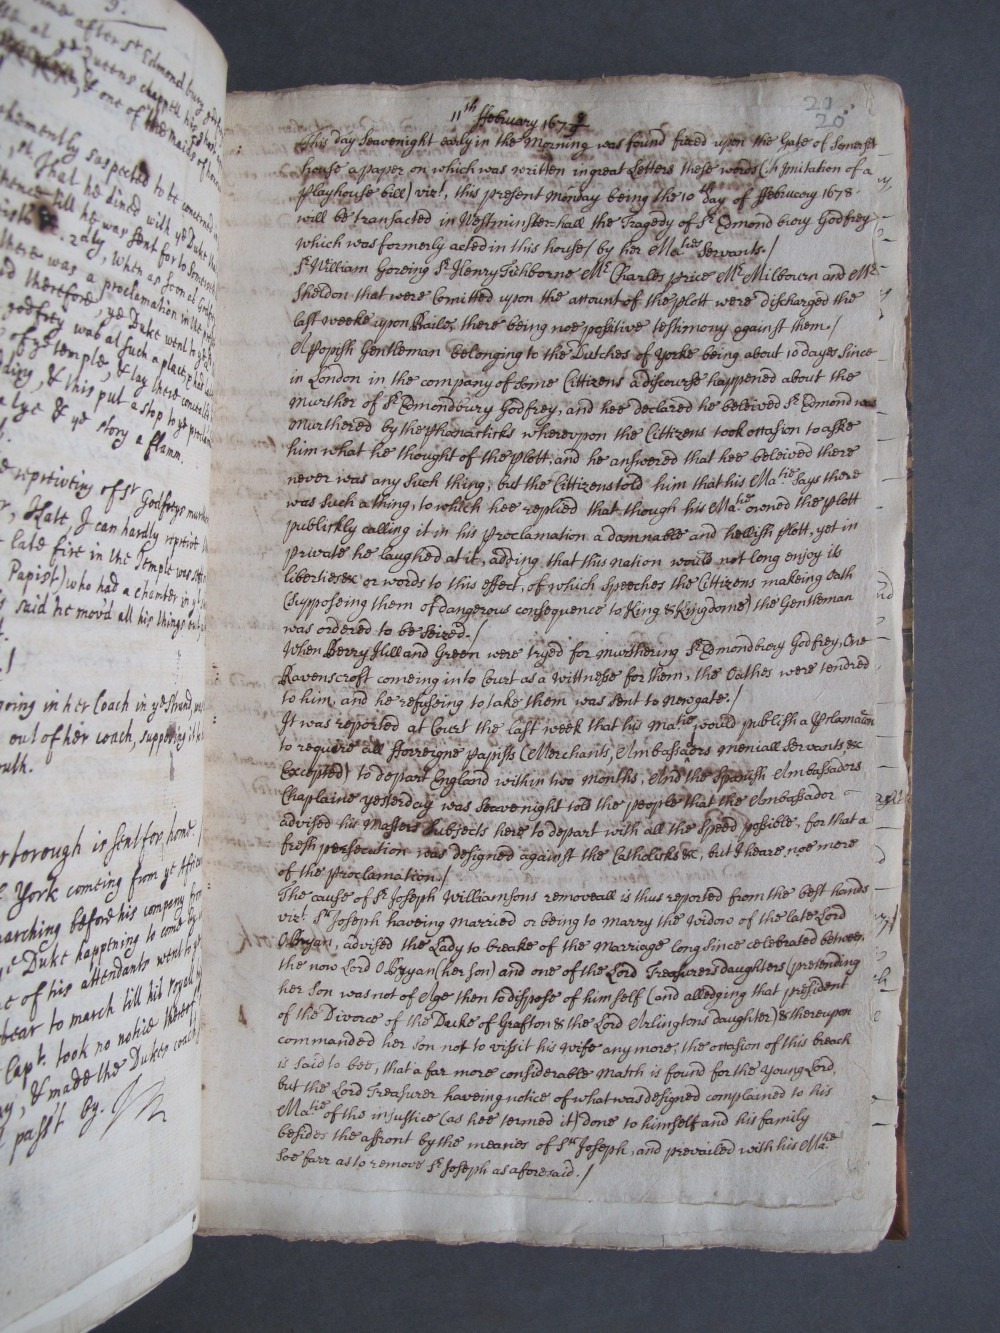 9.
after Sr Edmond bury
at ye Queens chappell
& one of the maids of honor
vehemently suspected to be concerned
st. That he dined with ye Duke
thence till he was sent for to Somersett
2dly, when as soone as
there was a proclamation in the
therefore, ye Duke went to ye
godfrey was at such a place,
of ye temple, & lay there
& this put a stop to ye
a lye & ye story a flamm.
of Sr Godfreys murther
Hatt, I can hardly
late fire in the Temple was
Papist) who had a chamber in ye
said he mov'd all his things
going in her Coach in ye Strand,
out of her coach,
borough is sent for home
York comeing from ye
marching before his company
ye Duke happening to come by
of his attendants went to
forbear to march till his royall
Capt. took no notice thereof
& made the Dukes coach
pass't by.
21.
20
11th ffebruary 1678/9
This day Seavenight early in the Morning was found fixed upon the Gate of Somerset
house a paper on which was written in great Letters these words (in Imitation of a
Playhouse bill) vizt, this present Monday being the 10th day of ffebruary 1678
will be transacted in Westminster=hall the Tragedy of Sr Edmond bury Godfrey
which was formerly acted in this house / by her Maties Servants. /
Sr William Goreing Sr Henry Tichborne Mr Charles Price Mr Milbourn and Mr
Sheldon that were Comitted upon the account of the plott were discharged the
last weeke upon Baile, there being noe positive testimony against them. /
A Popish Gentleman belonging to the Dutches of Yorke being about 10 dayes since
in London in the company of some Cittizens a discourse happened about the
Murther of Sr Edmondbury Godfrey, and hee declared he beleived Sr Edmond was
Murthered by the phanaticks whereupon the Cittizens took occasion to aske
him what he thought of the Plott, and he answered that hee beleived there
never was any such thing, but the Cittizens told him that his Matie Says there
was such a thing, to which hee replied that though his Matie owned the Plott
publickly calling it in his Proclamation a damnable and hellish plott, yet in
private he laughed at it, adding that this nation would not long enjoy its
liberties &c or words to this effect, of which speeches the Cittizens makeing Oath
(supposeing them of dangerous consequence to King & Kingdome) the Gentleman
was ordered to be seized. /
When Berry Hill and Green were tryed for murthering Sr Edmondbury Godfrey, One
Ravenscroft comeing into Court as a Wittnesse for them, the Oathes were tendred
to him, and he refuseing to take them was sent to Newgate. /
It was reported at Court the last week that his Matie would publish a Prlamacon
to require all fforreigne Papists (Merchants, Ambassadrs meniall Servants &c
Excepted) to depart England within two months. And the Spanish Ambassadors
Chaplaine yesterday was Seavenight told the people that the Ambassador
advised his Masters Subjects here to depart with all the speed possible, for that a
fresh persecution was designed against the Catholicks &c, but I heare noe more
of the Proclamation. /
The cause of Sr Joseph Williamsons removeall is thus reported from the best hands
vizt Sr Joseph haveing Married or being to Marry the Widow of the late Lord
OBryan, advised the Lady to breake of the Marriage long since celebrated between
the now Lord OBryan (her Son) and one of the Lord Treasurers daughters (pretending
her Son was not of Age then to dispose of himself (and alledging that president
of the Divorce of the Duke of Grafton & the Lord Arlingtons daughter) & thereupon
commanded her Son not to vissit his Wife any more; the occasion of this breach
is said to bee, that a far more considerable Match is found for the Young Lord,
but the Lord Treasurer haveing notice of what was designed complained to his
Matie of the injustice (as hee termed it) done to himself and his family
besides the affront by the meanes of Sr Joseph, and prevailed with his Matie
soe farr as to remove Sr Joseph as aforesaid. /